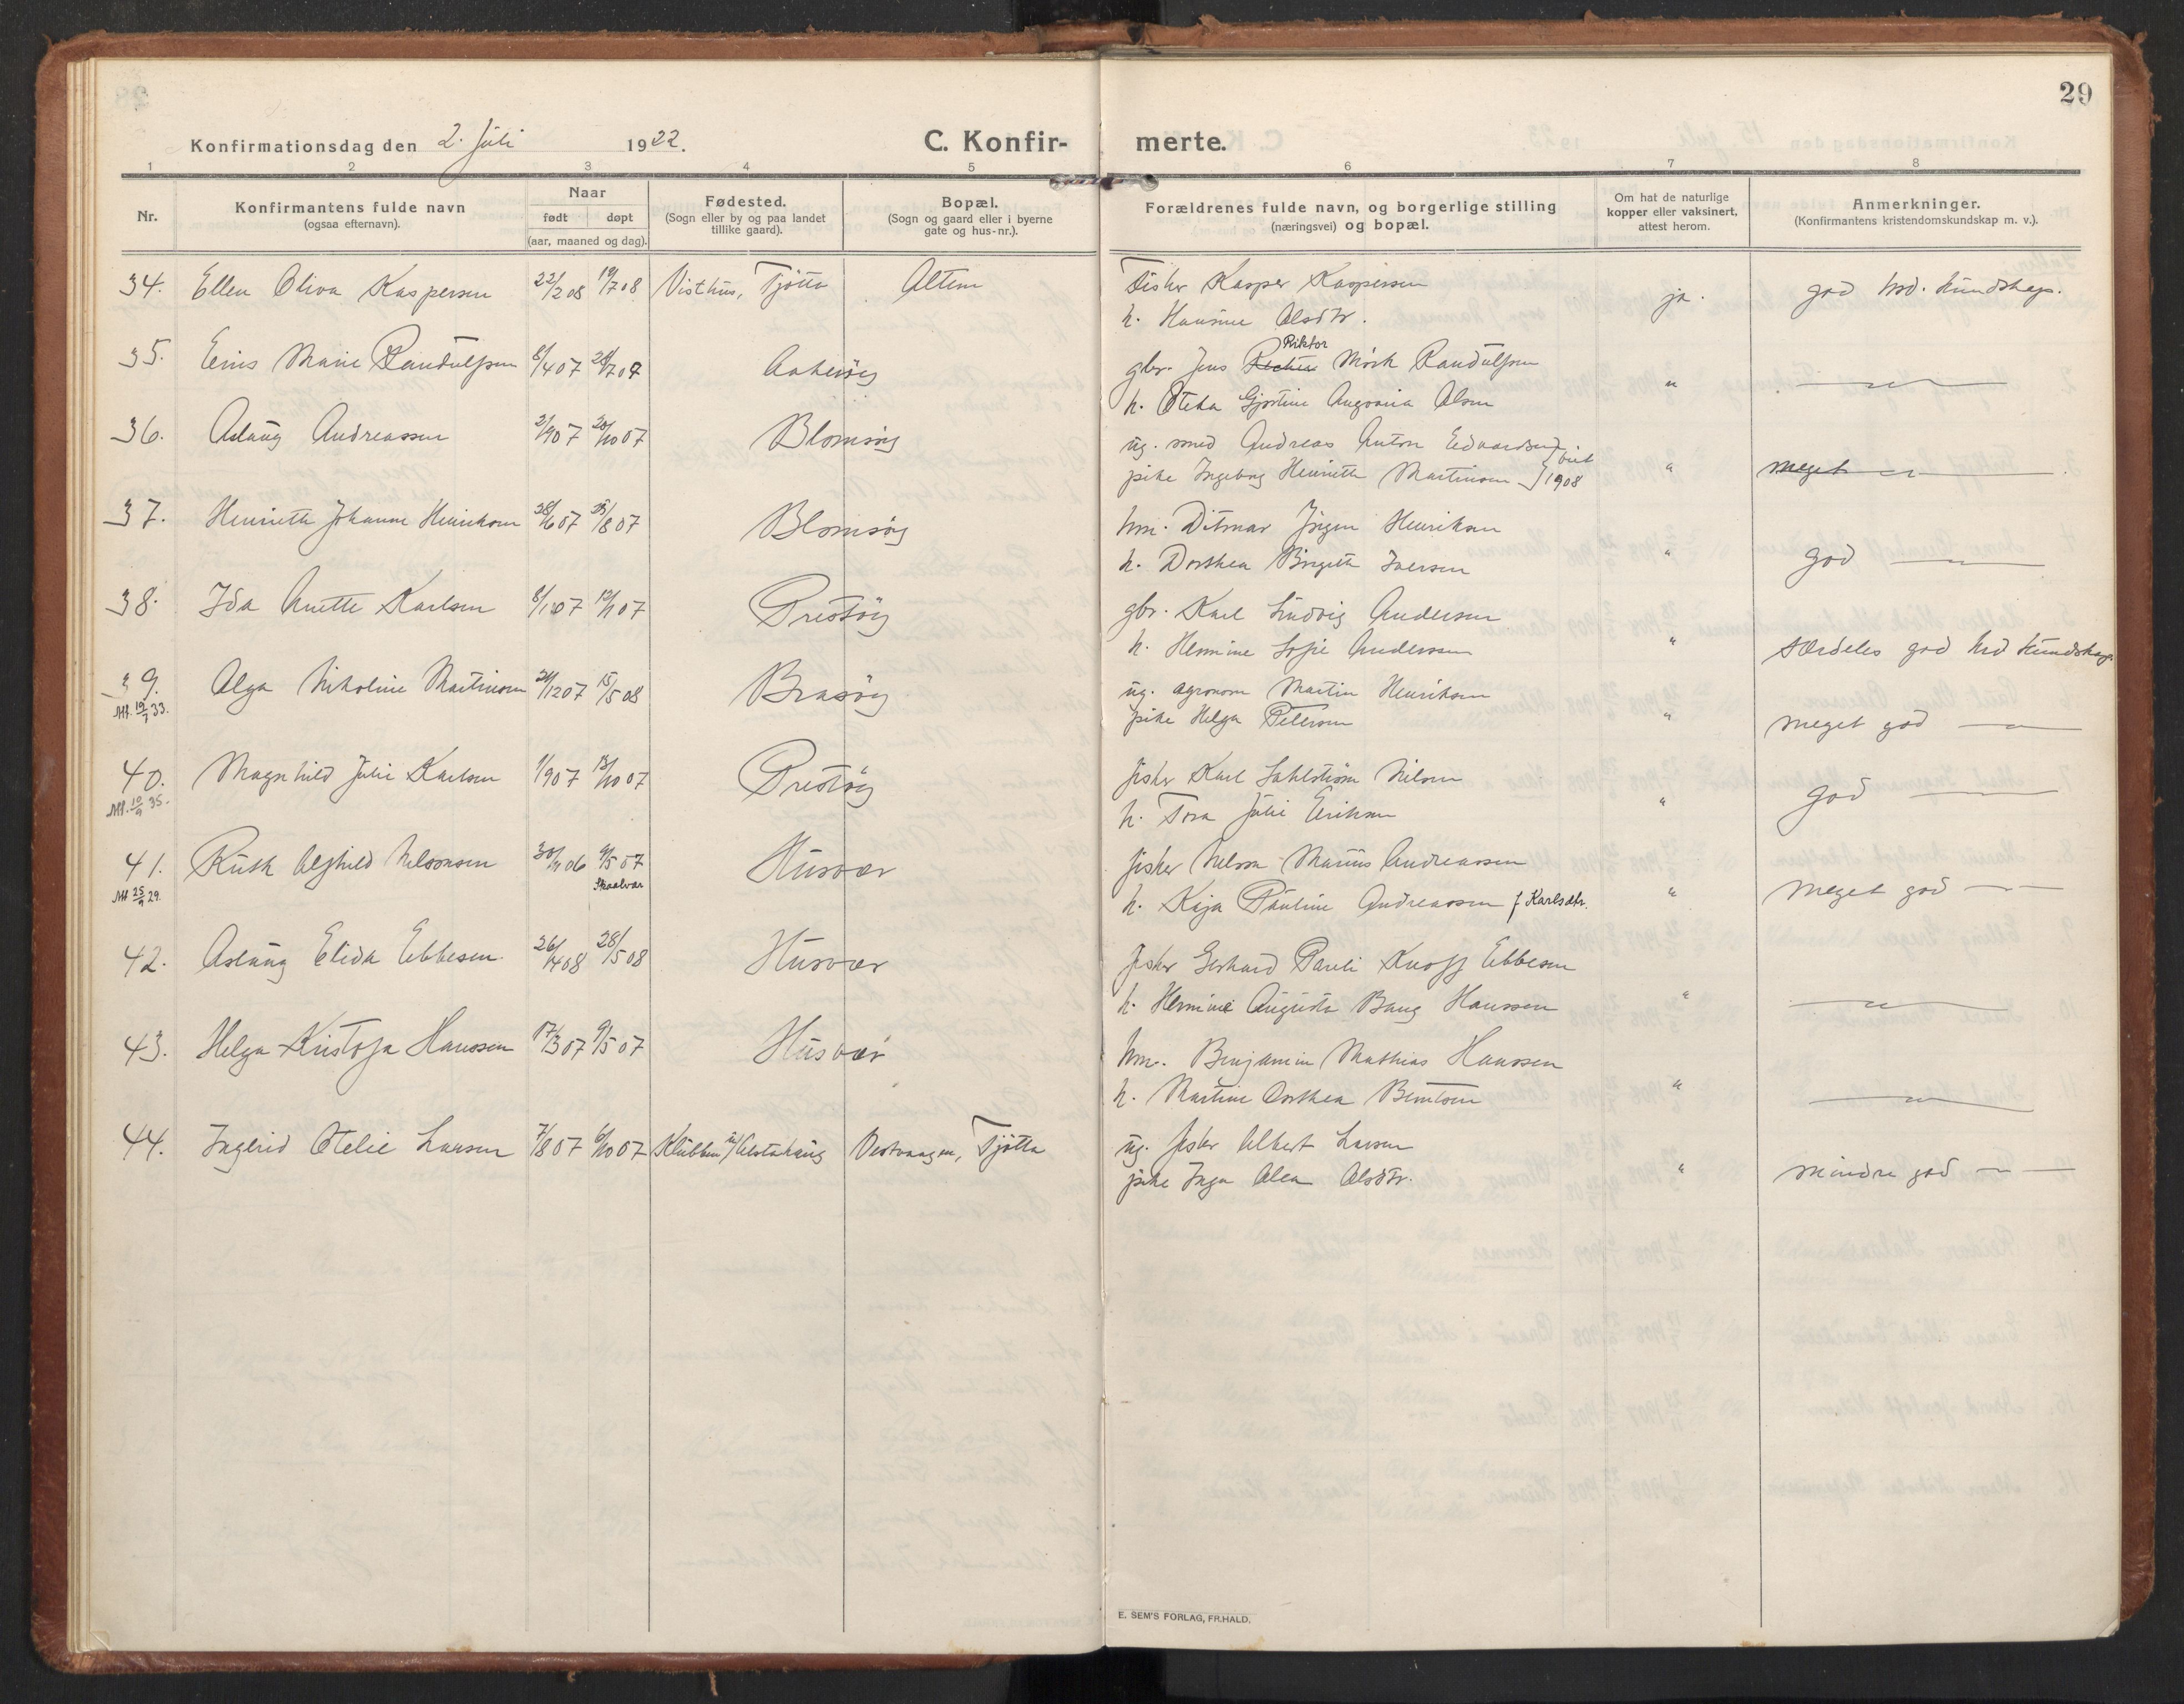 29
Konfirmationsdag den 2. Juli 1922.
C. Konfir-merte.
1 2 3 4 5 6 7 8
Nr.
Konfirmantens fulde navn
(ogsaa efternavn).
Naar
født døpt
(aar, maaned og dag).
Fødested.
(Sogn eller by og paa landet
tillike gaard).
Bopæl.
(Sogn og gaard eller i byerne
gate og hus-nr.).
Forældrenes fulde navn, og borgerlige stilling
(næringsvei) og bopæl.
Om hat de naturlige
kopper eller vaksinert,
attest herom.
Anmerkninger.
(Konfirmantens kristendomskundskap m. v.).
34. Ellen Oliva Kaspersen 22/2 08 19/7 08 Visthus, Tjötta Altem
Fisker Kasper Kaspersen
h. Hansine Olsdtr. ja. god krd. kundskap.
35. Marie Randulfsen 8/4 07 Aakerøy
Riktor
gbr. Jens Mörk Randulfsen
h. Otelia Gjertine Olsen " — " —
36. Aslaug Andreassen 2/9 07 20/10 07 Blomsøy
ug. smed Andreas Anton Edvardsen
pike Ingeborg Henriette Martinsen } viet 1908 " meget — " —
37. Henriette Johanne Henriksen 28/6 07 25/8 07 Blomsøy
hm. Ditmar Jörgen Henriksen
h. Dorthea Birgitte Iversen " god — " —
38. Ida Anette Karlsen 8/1 07 Prestøy
gbr. Karl Ludvig Andersen
h. Hermine Sofie Anderssen " særdeles god krd kundskap
39. Olga Nikoline Martinsen 21/12 07 15/5 08 Brasøy
Att. 19/7 33.
ug. agronom Martin Henriksen
pike Helga Petersen " meget god — " —
40. Magnhild Julie Karlsen 1/9 07 13/10 07 Prestøy
Att. 10/9 35.
fisker Karl Sahlström Nilsen
h. Tora Julie Eriksen " god — " —
41. Ruth Alfhild Nelsonsen 30/11 06 9/5 07 Husvær
Skaalvær
Att 25/9 29.
fisker Nelson Marius Andreassen
h. Kaja Pauline Andreassen f. Karlsdtr. " meget god — " —
42. Aslaug Elida Ebbesen. 26/4 08 28/5 08 Husvær
fisker Gerhard Pareli Knoff Ebbesen
h. Hermine Augusta Bang Hanssen " — " —
43. Helga Kristofa Hanssen 17/3 07 9/5 07 Husvær
hm. Benjamin Mathias Hanssen
h. Martine Dorthea Berntsen " — " —
44. Ingerid Otelie Larsen 7/8 07 6/10 07 Klubben i/ Alstahaug Vestvaagen, Tjøtta
ug. fisker Albert Larsen
pike Inga Alea Olsdtr. " mindre god — " —
E. SEM'S FORLAG, FR.HALD.